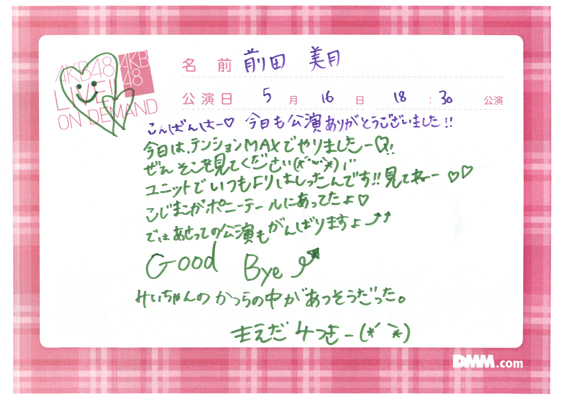 AKB48
LIVE!!
ON DEMAND
AKB
48
名 前 前田 美月
公演日 5 月 16 日 18 : 30 公演
こんばんはー♡ 今日も公演ありがとうございました!!
今日は、テンションMAXでやりましたー♡!!
ぜひ そこを見てください
ユニットでいつもよりはしったんです!! 見てねー♡♡
こじまこがポニーテールにあってたよ♡
ではあさっての公演もがんばりますよー⤴⤴
Good Bye
けいちゃんの かつらの中があつそうだった。
まえだ みつきー
DMM.com